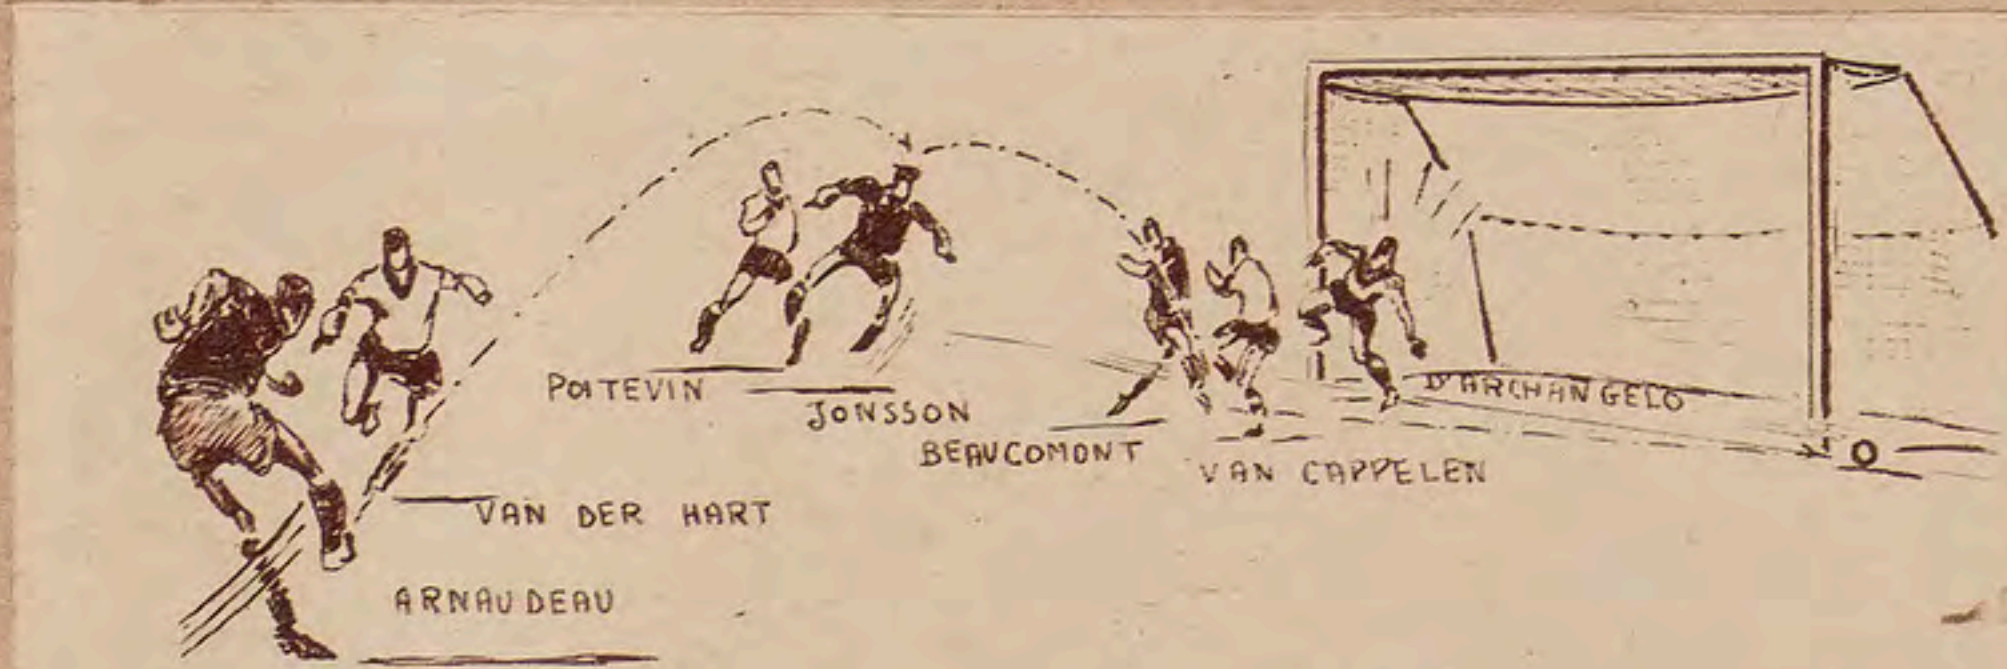 POITEVIN
JONSSON
D'ARCHANGELO
BEAUCOMONT
VAN CAPPELEN
VAN DER HART
ARNAUDEAU